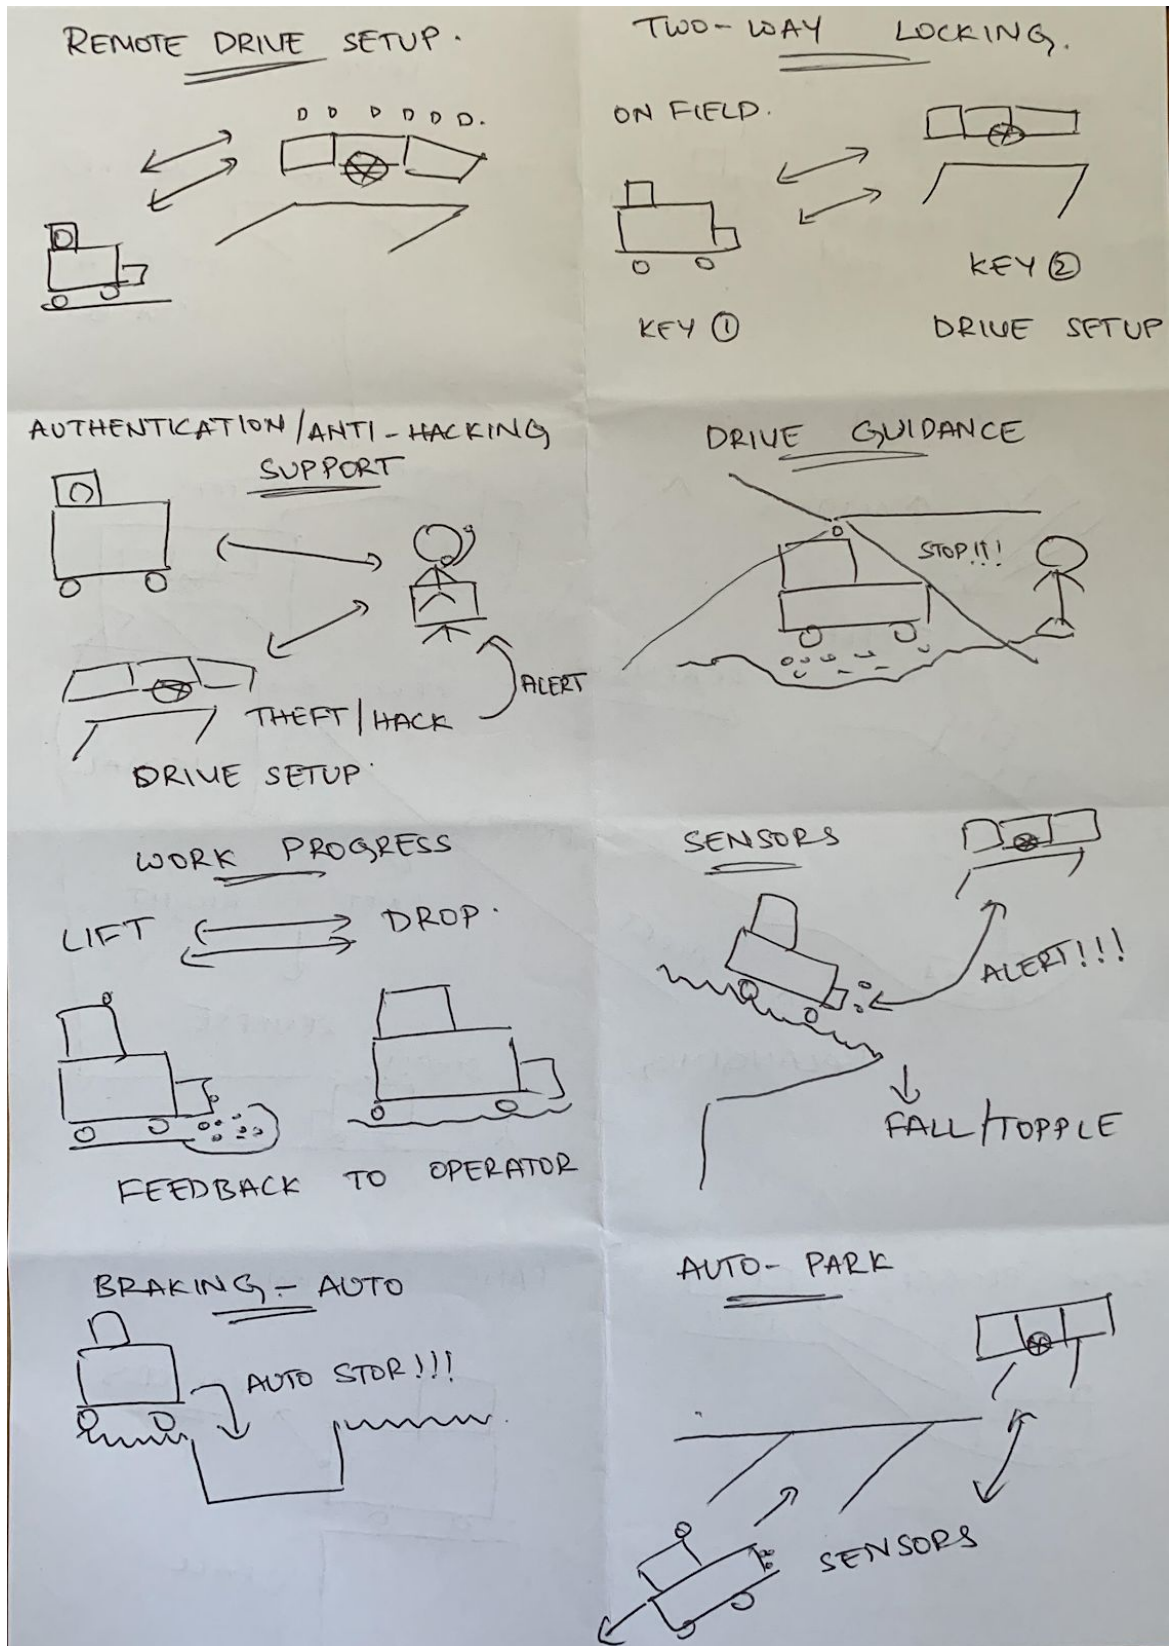 REMOTE DRIVE SETUP.
D D D D D D.
TWO-WAY LOCKING.
ON FIELD.
KEY ①
KEY ②
DRIVE SETUP
AUTHENTICATION/ANTI-HACKING
SUPPORT
ALERT
THEFT/HACK
DRIVE SETUP.
DRIVE GUIDANCE
STOP!!!
WORK PROGRESS
LIFT
DROP.
FEEDBACK TO OPERATOR
SENSORS
ALERT!!!
FALL/TOPPLE
BRAKING - AUTO
AUTO STOP!!!
AUTO- PARK
SENSORS